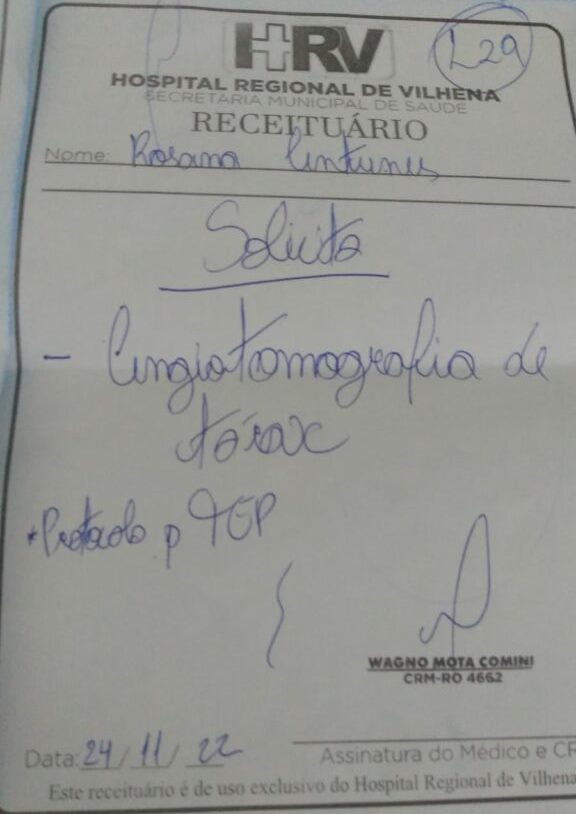 HRV
L29
HOSPITAL REGIONAL DE VILHENA
SECRETARIA MUNICIPAL DE SAÚDE
RECEITUÁRIO
Nome: Rosana Antunes
Solicito
- Angiotomografia de
tórax
*Protocolo p TEP
WAGNO MOTA COMINI
CRM-RO 4662
Data: 24/11/22
Assinatura do Médico e CR
Este receituário é de uso exclusivo do Hospital Regional de Vilhena